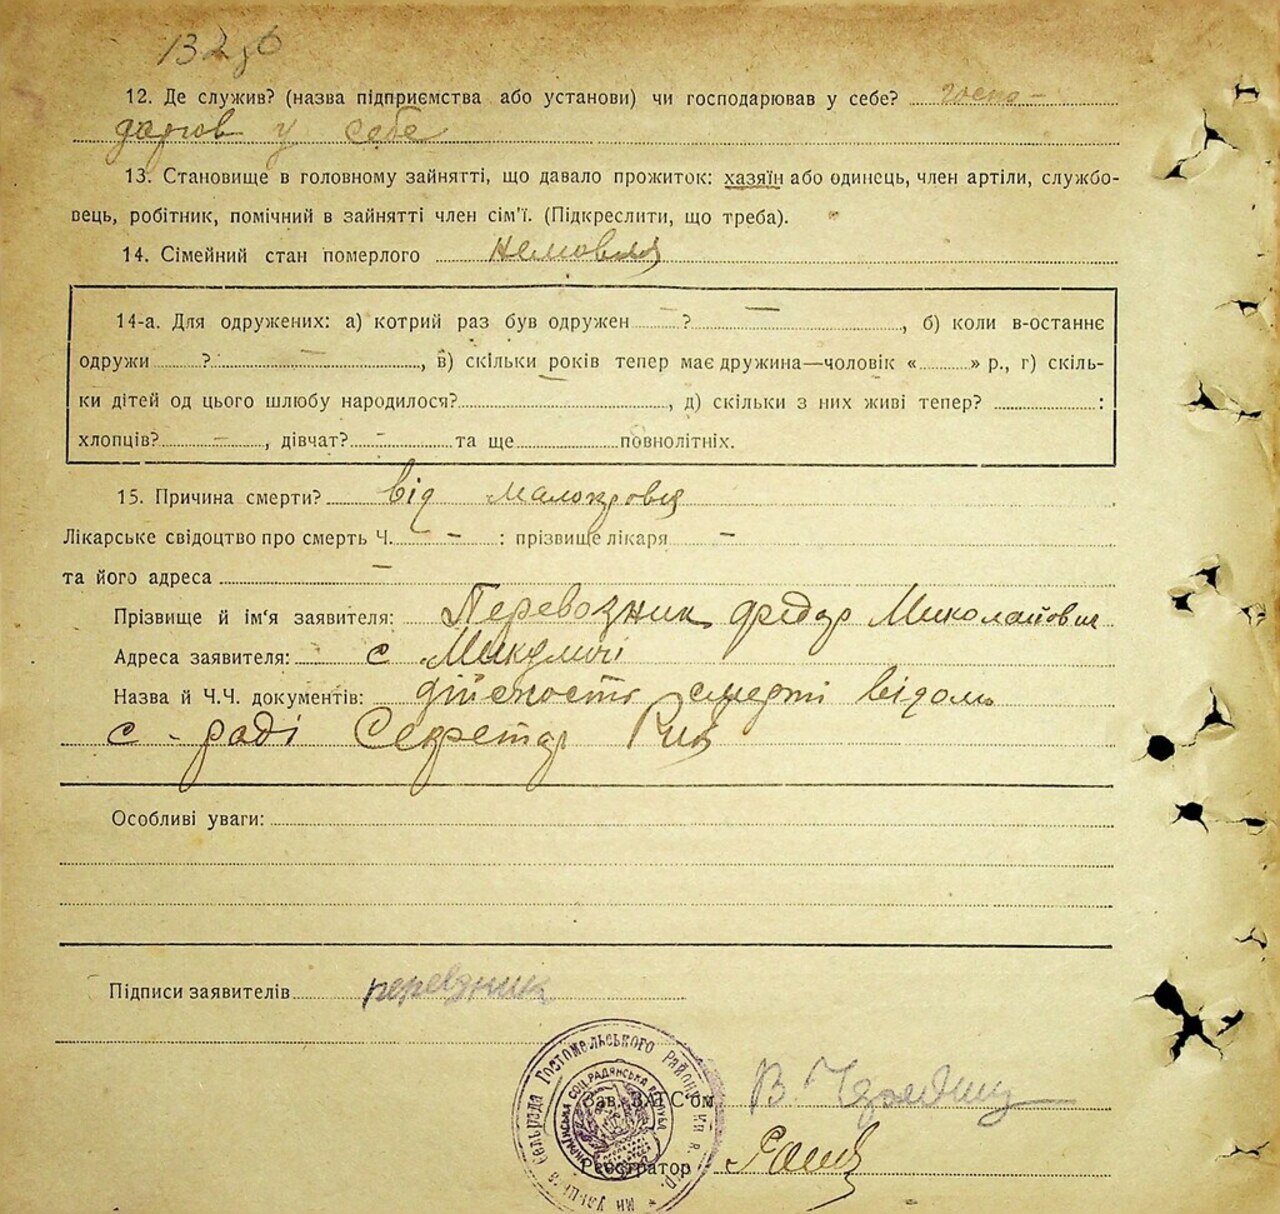 132 зб
12. Де служив? (назва підприємства або установи) чи господарював у себе? госпо-
дарюв у себе
13. Становище в головному зайнятті, що давало прожиток: хазяїн або одинець, член артіли, службо-
вець, робітник, помічний в зайнятті член сім'ї. (Підкреслити, що треба).
14. Сімейний стан померлого немовля
14-а. Для одружених: а) котрий раз був одружен ? —, б) коли в-останнє
одружи ? —, в) скільки років тепер має дружина—чоловік « » р., г) скіль-
ки дітей од цього шлюбу народилося? —, д) скільки з них живі тепер? :
хлопців? —, дівчат? — та ще повнолітніх.
15. Причина смерти? від малокровя
Лікарське свідоцтво про смерть Ч. — : прізвище лікаря —
та його адреса —
Прізвище й ім'я заявителя: Перевозник Федор Миколайович
Адреса заявителя: с Микуличі
Назва й Ч.Ч. документів: дійсность смерті відом
с-раді Секретар
Особливі уваги:
Підписи заявителів перевзник
Сельрада Гостомельського Району
УКРАЇНСЬКА СОЦ. РАДЯНСЬКА РЕСПУБ
Зав. ЗАГС'ом
Реєстратор